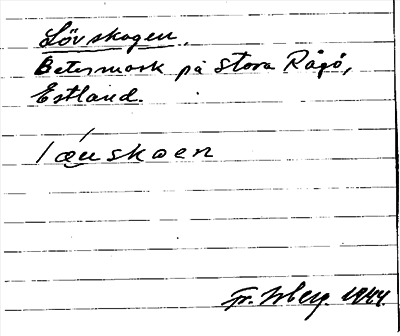 Lövskogen.
Betesmark på Stora Rågö,
Estland.
læuskoen
1944